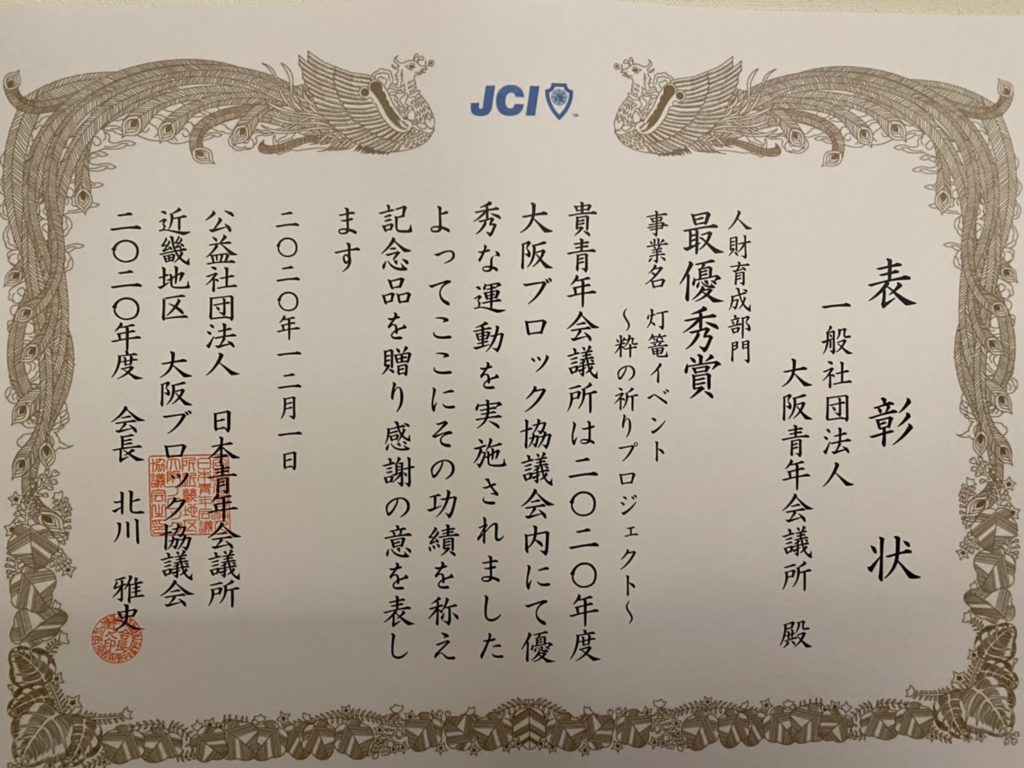 JCI
表彰状
一般社団法人
大阪青年会議所 殿
人財育成部門
最優秀賞
事業名 灯篭イベント
～粋の祈りプロジェクト～
貴青年会議所は二〇二〇年度
大阪ブロック協議会内にて優
秀な運動を実施されました
よってここにその功績を称え
記念品を贈り感謝の意を表し
ます
二〇二〇年一二月一日
公益社団法人 日本青年会議所
近畿地区 大阪ブロック協議会
二〇二〇年度 会長 北川 雅史